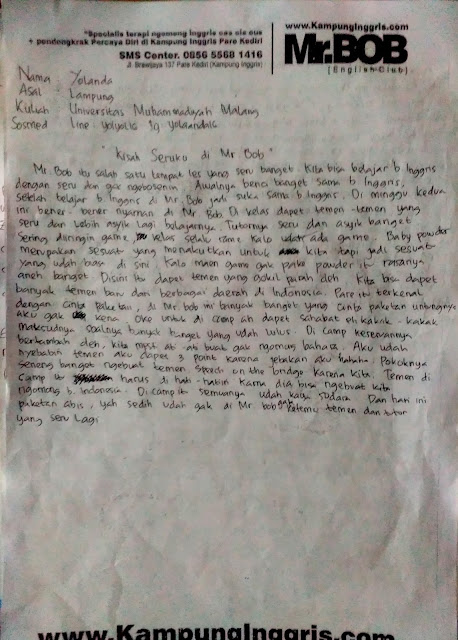 "Specialis terapi ngomong Inggris cas cis cus
+ pendongkrak Percaya Diri di Kampung Inggris Pare Kediri
SMS Center. 0856 5568 1416
Jl. Brawijaya 137 Pare Kediri (Kampung Inggris)
www.KampungInggris.com
Mr.BOB
[English Club]
Nama Yolanda
Asal Lampung
Kuliah Universitas Muhammadiyah Malang
Sosmed line: yolyolls Ig: yolaandals
"Kisah Seruku di Mr. Bob"
Mr. Bob itu salah satu tempat les yang seru banget. Kita bisa belajar b Inggris
dengan seru dan gak ngebosenin. Awalnya benci banget sama b Inggris,
setelah belajar b Inggris di Mr Bob jadi suka sama b Inggris. Di minggu kedua
ini bener-bener nyaman di Mr Bob. Di kelas dapet temen-temen yang
seru dan lebih asyik lagi belajarnya. Tutornya seru dan asyik banget
sering diiringin game, kelas selalu rame kalo udah ada game. Baby powder
merupakan sesuat yang menakutkan untuk kita tapi jadi sesuat
yang udah biasa di sini. Kalo main game gak pake powder it rasanya
aneh banget. Disini itu dapet temen yang gokil parah deh. Kita bisa dapet
banyak temen baru dari berbagai daerah di Indonesia. Pare itu terkenal
dengan cinta paketan, di Mr bob ini banyak banget yang cinta paketan untungnya
aku gak kena. Oke untuk di camp ah dapet sahabat eh kakak-kakak
maksudnya soalnya banyak banget yang udah lulus. Di camp keseruannya
bertambah deh, kita mesti at-ati buat gak ngomong bahasa. Aku udah
nyebabin temen aku dapet 3 point karena jebakan aku hahaha. Pokoknya
seneng banget ngebuat temen speech on the bridge karena kita. Temen di
camp it harus di hati-hatiin karna dia bisa ngebuat kita
ngomong b. Indonesia. Di camp its semuanya udah kaya sodara. Dan hari ini
paketan abis, yah sedih udah gak di Mr bob gak ketemu temen dan tutor
yang seru lagi
www.KampungInggris.com